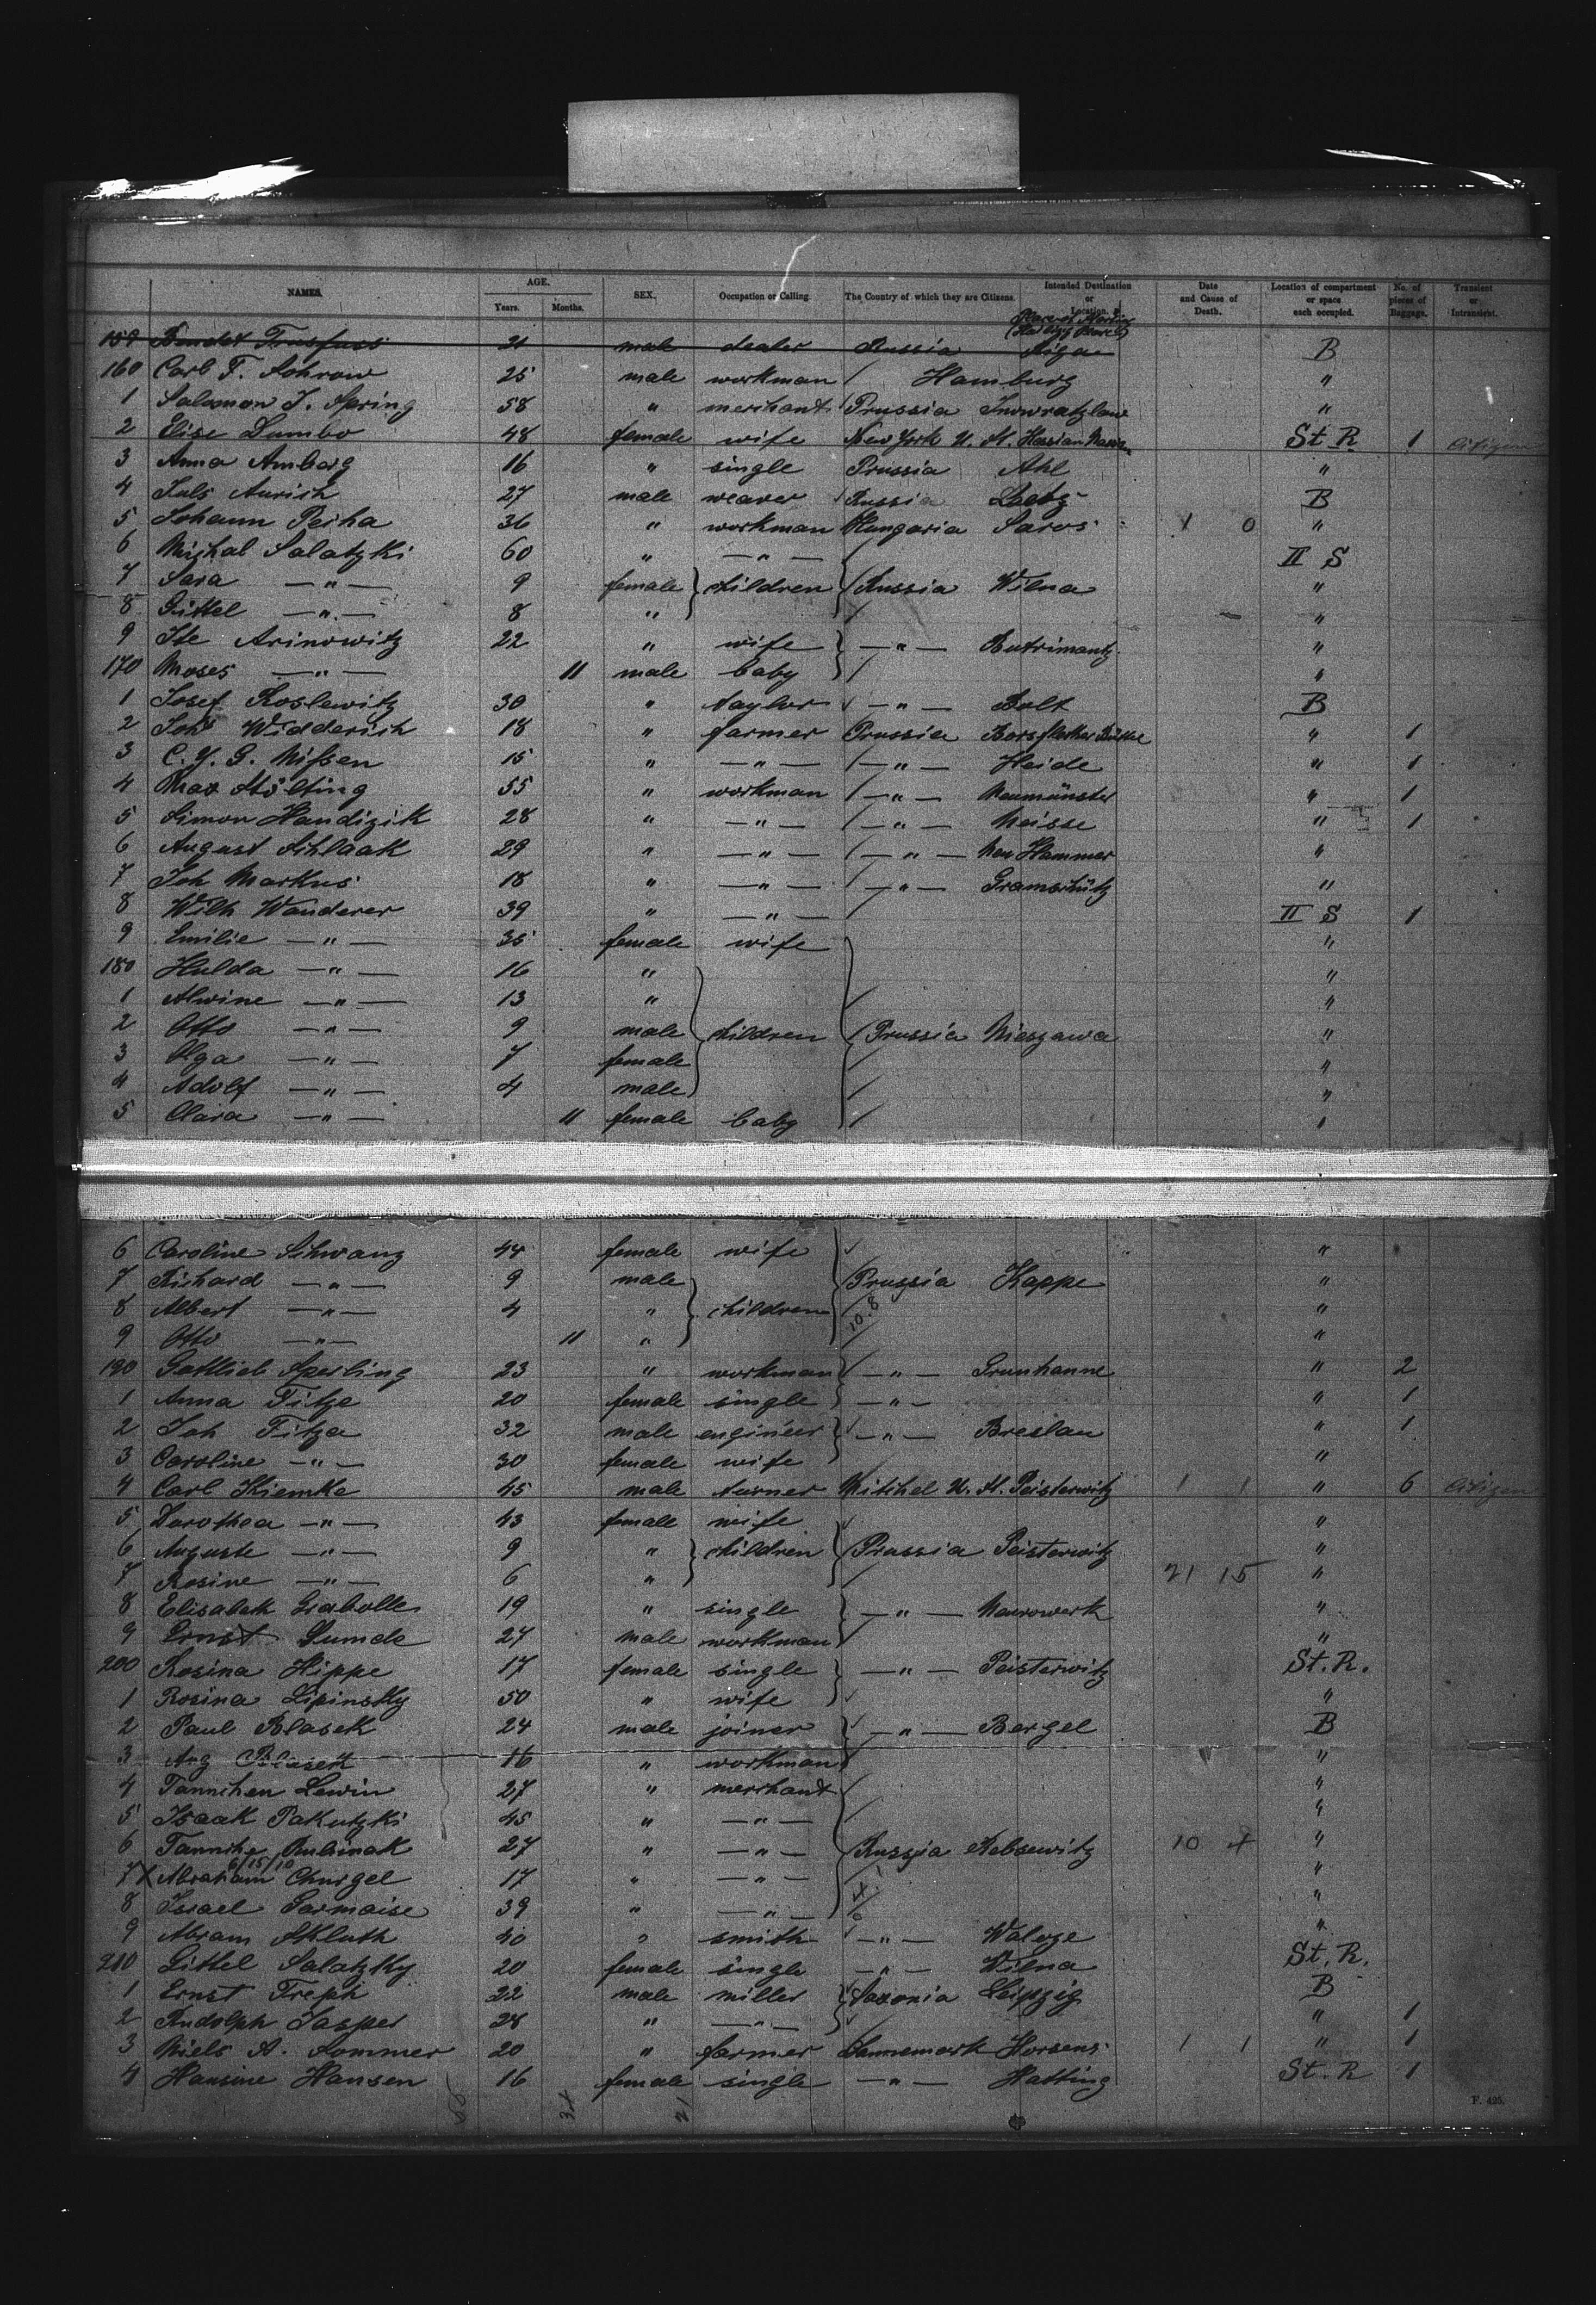 NAMES. AGE. Years. Months. SEX. Occupation or Calling. The Country of which they are Citizens. Intended Destination or Location. Date and Cause of Death. Location of compartment or space each occupied. No. of pieces of Baggage. Transient or Intransient.
159 21 male dealer Russia Riga B
160 Carl F. 25 male workman / Hamburg "
1 Salomon J. Spring 58 " merchant Prussia Inowratzlaw "
2 Elise Dumbo 48 female wife New York U. St. St R 1 Citizen
3 Anna Amberg 16 " single Prussia Ahl "
4 Juls Aurich 27 male weaver Russia B
5 Johann Peiha 36 " workman Hungaria Saros 1 0 "
6 Michal Salatzki 60 " — " — II S
7 Sara — " — 9 female children Russia Wilna "
8 Gittel — " — 8 " "
9 Ite Arinowitz 22 " wife — " — Butrimantz "
170 Moses — " — 11 male baby "
1 Josef Koslewitz 30 " taylor — " — B
2 Joh Widderich 18 " farmer Prussia " 1
3 C. J. G. Nissen 15 " — " — — " — Heide " 1
4 Max Stölting 55 " workman — " — Neumünster " 1
5 Simon Handizik 28 " — " — — " — Neisse " 1
6 August Schlaak 29 " — " — — " — Neu Hammer "
7 Joh Markus 18 " — " — — " — Gramschütz "
8 Wilh Wanderer 39 " — " — II S 1
9 Emilie — " — 35 female wife "
180 Hulda — " — 16 " "
1 Alwine — " — 13 " "
2 Otto — " — 9 male children Prussia Nieszawa "
3 Olga — " — 7 female "
4 Adolf — " — 4 male "
5 Clara — " — 11 female baby "
6 Caroline Schwanz 44 female wife "
7 Richard — " — 9 male Prussia Kappe "
8 Albert — " — 4 " children "
9 Otto — " — 11 " "
190 Gottlieb Sperling 23 " workman — " — " 2
1 Anna Titze 20 female single — " — " 1
2 Joh Titza 32 male engineer — " — Breslau " 1
3 Caroline — " — 30 female wife "
4 Carl Kiemka 45 male turner U. St. Peisterwitz 1 1 " 6 Citizen
5 Dorothea — " — 43 female wife "
6 Auguste — " — 9 " children Prussia Peisterwitz "
7 Rosine — " — 6 " 21 15 "
8 Elisabeth 19 " single — " — "
9 Ernst 27 male workman "
200 Rosina Hippe 17 female single — " — Peisterwitz St. R.
1 Rosina Lipinsky 50 " wife "
2 Paul Blasek 24 male joiner — " — Bergel B
3 Aug Blasek 16 " workman "
4 Tannchen Lewin 27 " merchant "
5 Isaak Pakutzki 45 " — " — "
6 27 " — " — Russia 10 4 "
6/15/10
7 X Abraham Churgel 17 " — " — "
8 Israel Garmaise 39 " — " — "
9 Abram 40 " smith — " — "
210 Gittel Salatzky 20 female single — " — Wilna St. R.
1 Ernst Treph 22 male miller Saxonia Leipzig B
2 Rudolph Jasper 28 " — " — " 1
3 Niels A. Sommer 20 " farmer Dannemark Horsens 1 1 " 1
4 Hansine Hansen 16 female single — " — Hatting St. R 1
F. 425.